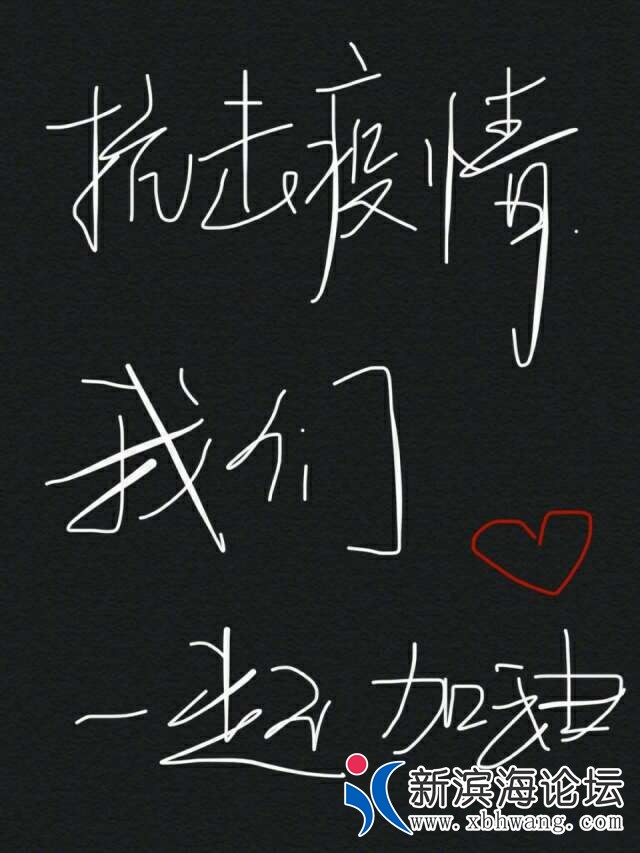 抗击疫情
我们
一起 加油
新滨海论坛
www.xbhwang.com